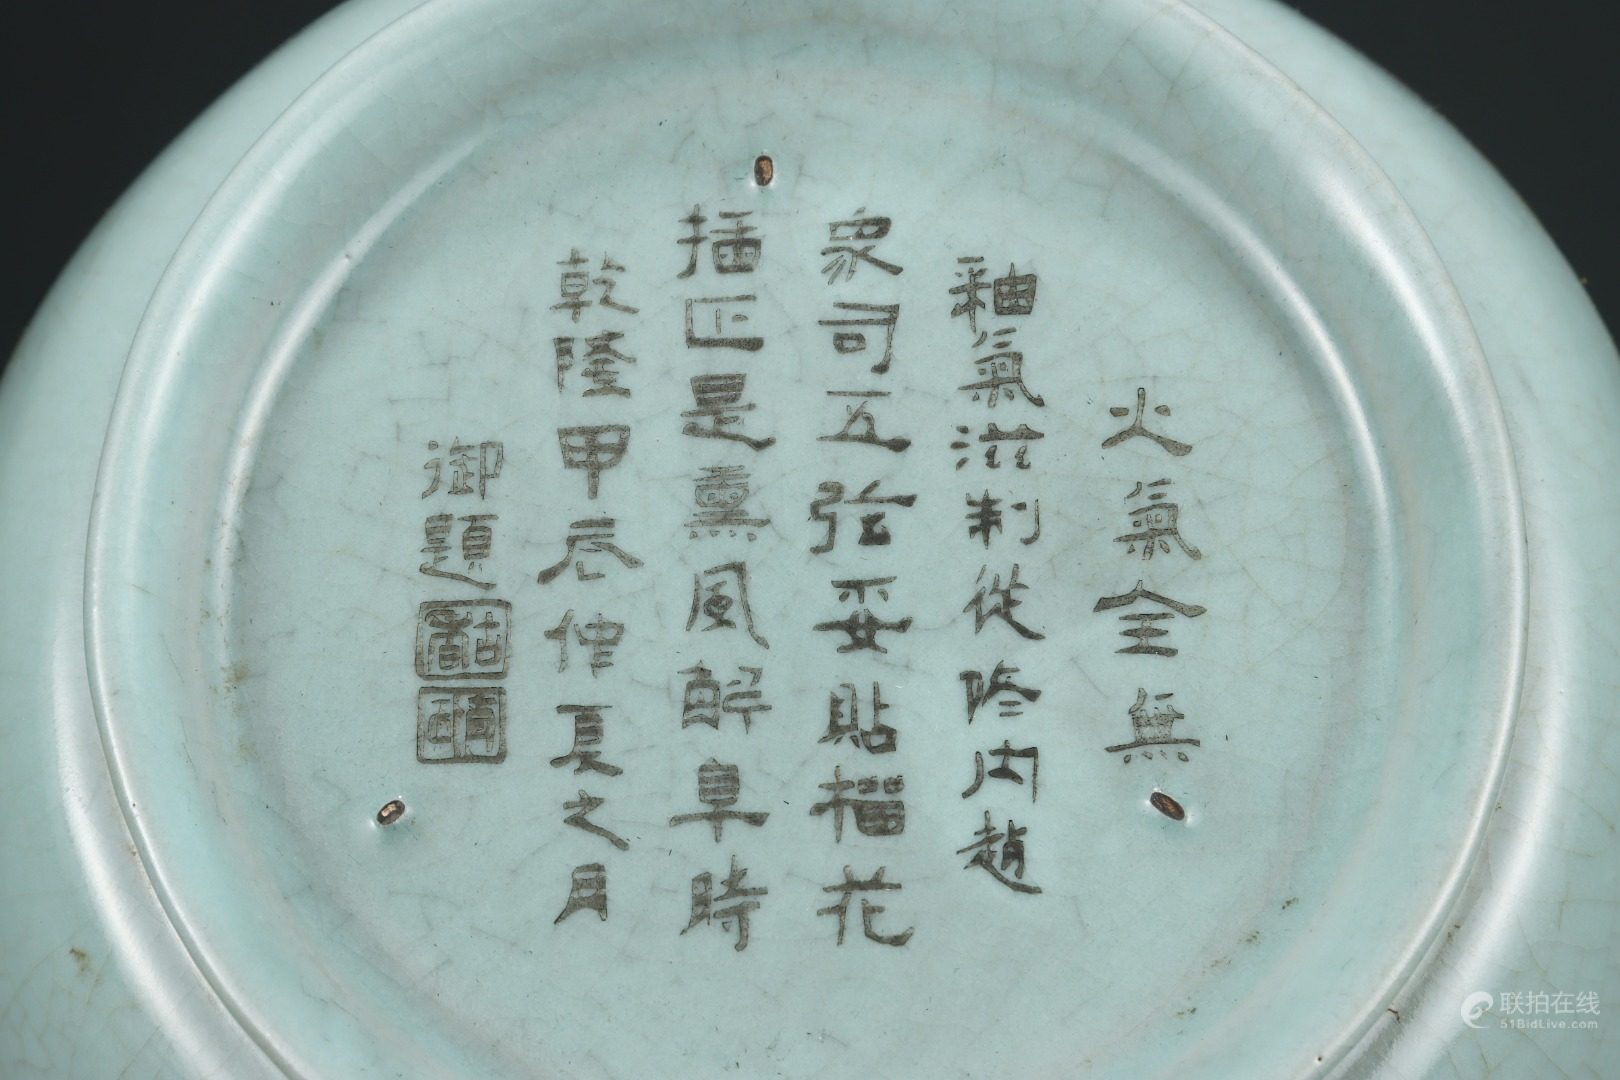 火氣全無
釉氣滋制從修内趙
家司五弦妥貼榴花
插正是熏風解阜時
乾隆甲辰仲夏之月
御題
古香
联拍在线
51BidLive.com